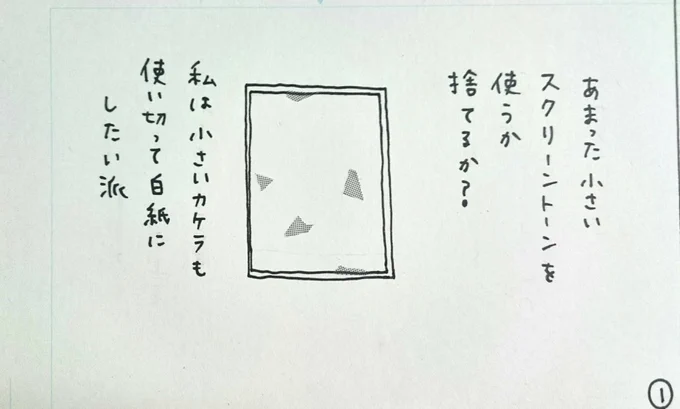 あまった小さい
スクリーントーンを
使うか
捨てるか?
私は小さいカケラも
使い切って白紙に
したい派
1